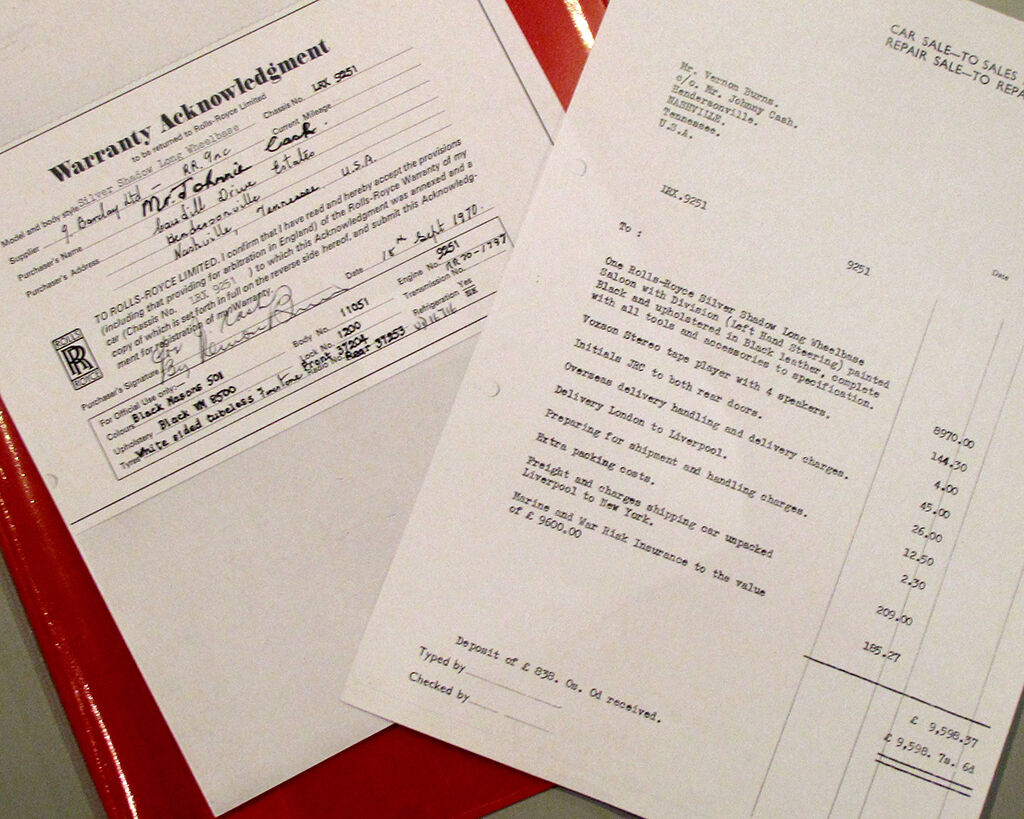 Warranty Acknowledgment
to be returned to Rolls-Royce Limited
Model and body style Silver Shadow Long Wheelbase Chassis No. LRX 9251
Supplier 9 Barclay Ltd - RR. Inc Current Mileage
Purchaser's Name Mr. Johnnie Cash.
Purchaser's Address Caudill Drive Estates
Hendersonville
Nashville, Tennessee U.S.A.
TO ROLLS-ROYCE LIMITED. I confirm that I have read and hereby accept the provisions
(including that providing for arbitration in England) of the Rolls-Royce Warranty of my
car (Chassis No. LRX 9251 ) to which this Acknowledgment was annexed and a
copy of which is set forth in full on the reverse side hereof, and submit this Acknowledg-
ment for registration of my Warranty.
Date 15th Sept 1970.
Purchaser's Signature
ROLLS
RR
ROYCE
For Official Use only:—
Body No. 11051 Engine No. 9251
Colours Black Masons 501 Lock No. 1200 Transmission No.
Upholstery Black VM 8500 Front 37204 Refrigeration Yes
Tyres White sided tubeless Firestone Radio Rear 37253
CAR SALE—TO SALES
REPAIR SALE—TO REPA
Mr. Vernon Burns.
c/o. Mr. Johnny Cash.
Hendersonville.
NASHVILLE.
Tennessee.
U.S.A.
LRX.9251
To : 9251 Date
One Rolls-Royce Silver Shadow Long Wheelbase
Saloon with Division (left Hand Steering) painted
Black and upholstered in Black leather, complete
with all tools and accessories to specification. 8970.00
Voxson Stereo tape player with 4 speakers. 144.30
Initials JRC to both rear doors. 4.00
Overseas delivery handling and delivery charges. 45.00
Delivery London to Liverpool. 26.00
Preparing for shipment and handling charges. 12.50
Extra packing costs. 2.30
Freight and charges shipping car unpacked
Liverpool to New York. 209.00
Marine and War Risk Insurance to the value
of £ 9600.00 185.27
£ 9,598.37
£ 9,598. 7s. 6d
Deposit of £ 838. 0s. 0d received.
Typed by
Checked by